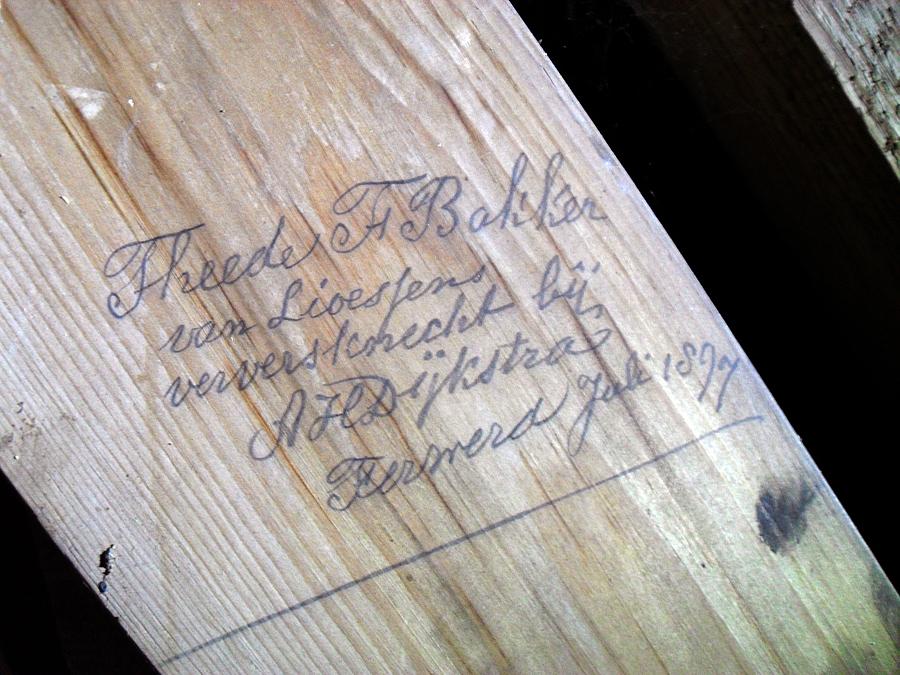 Theede F Bakker
van Lioessens
ververs knecht bij
A H Dijkstra
Ferwerd Juli 1897